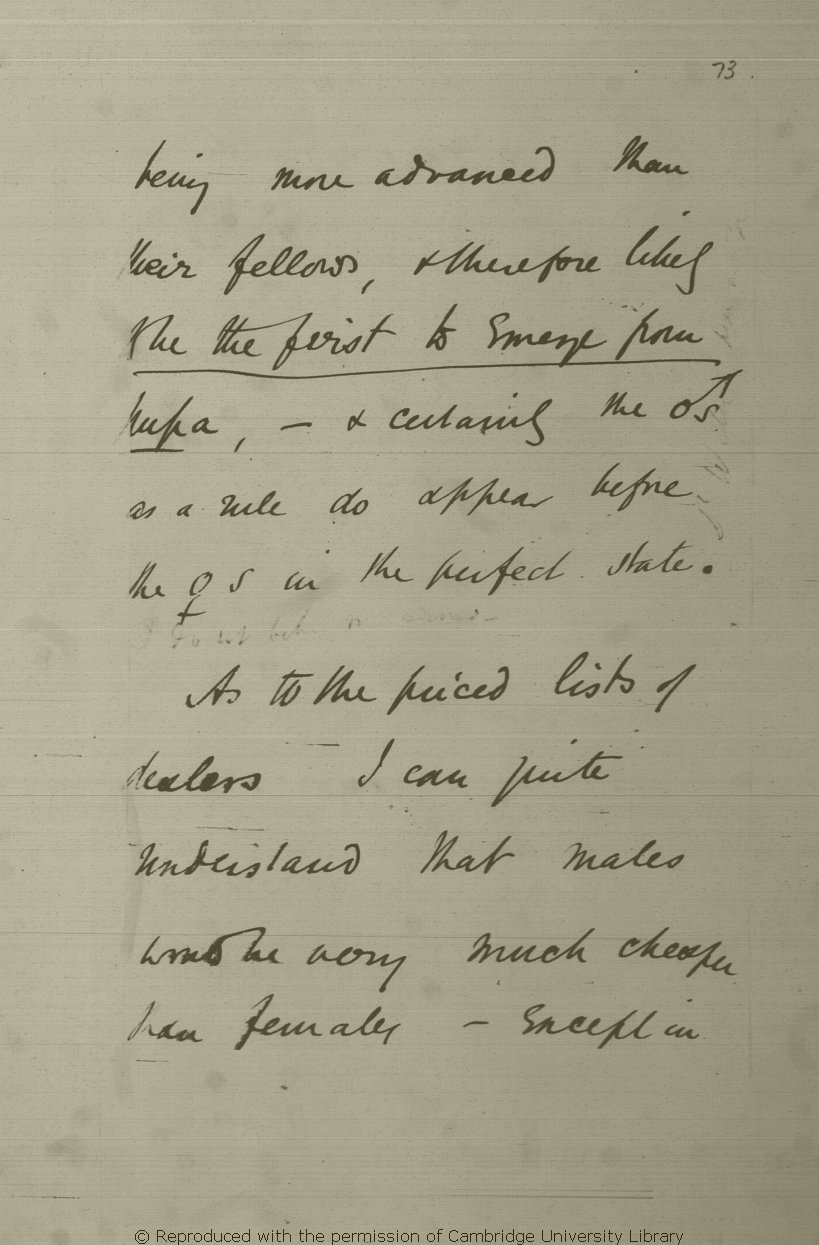 73.
being more advanced than
their fellows, & therefore likely
the the first to emerge from
pupa, — & certainly the ♂s
as a rule do appear before
the ♀s in the perfect state.
I do not
As to the priced lists of
dealers I can quite
understand that males
would be very much cheaper
than females — Except in
© Reproduced with the permission of Cambridge University Library